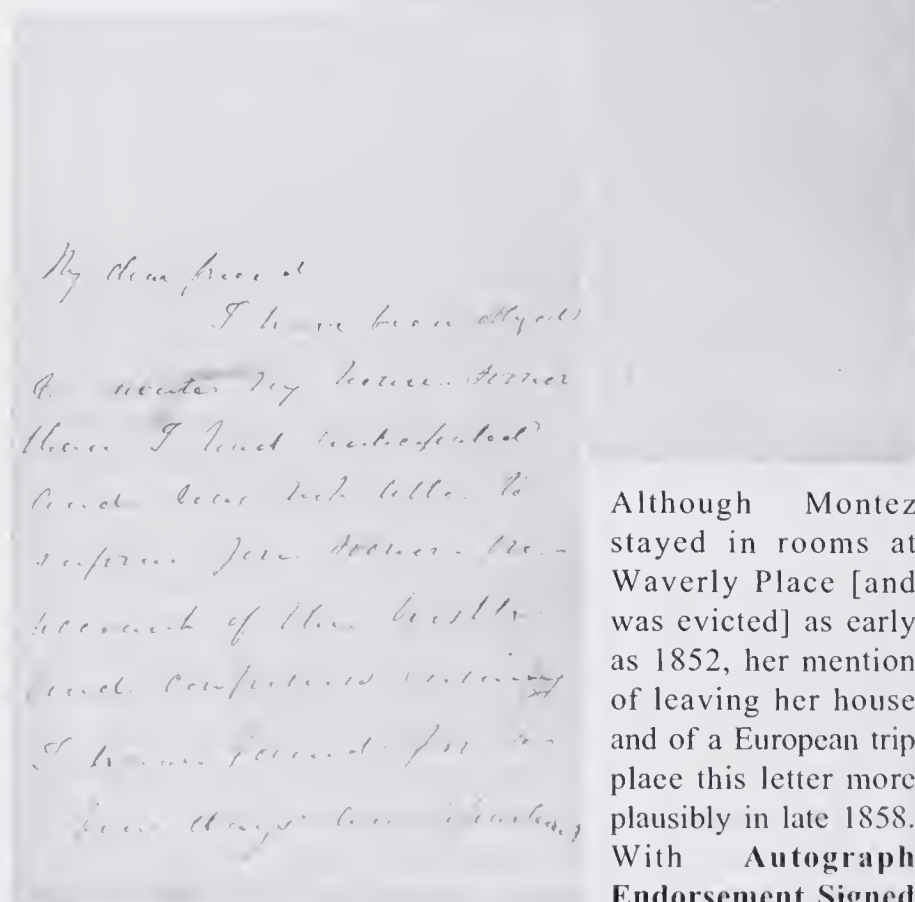 My dear friend
I have been obliged
to my house sooner
than I had anticipated
and was not able to
inform you sooner
account of the bustle
and confusion
I have for
days
Although Montez
stayed in rooms at
Waverly Place [and
was evicted] as early
as 1852, her mention
of leaving her house
and of a European trip
place this letter more
plausibly in late 1858.
With Autograph
Endorsement Signed